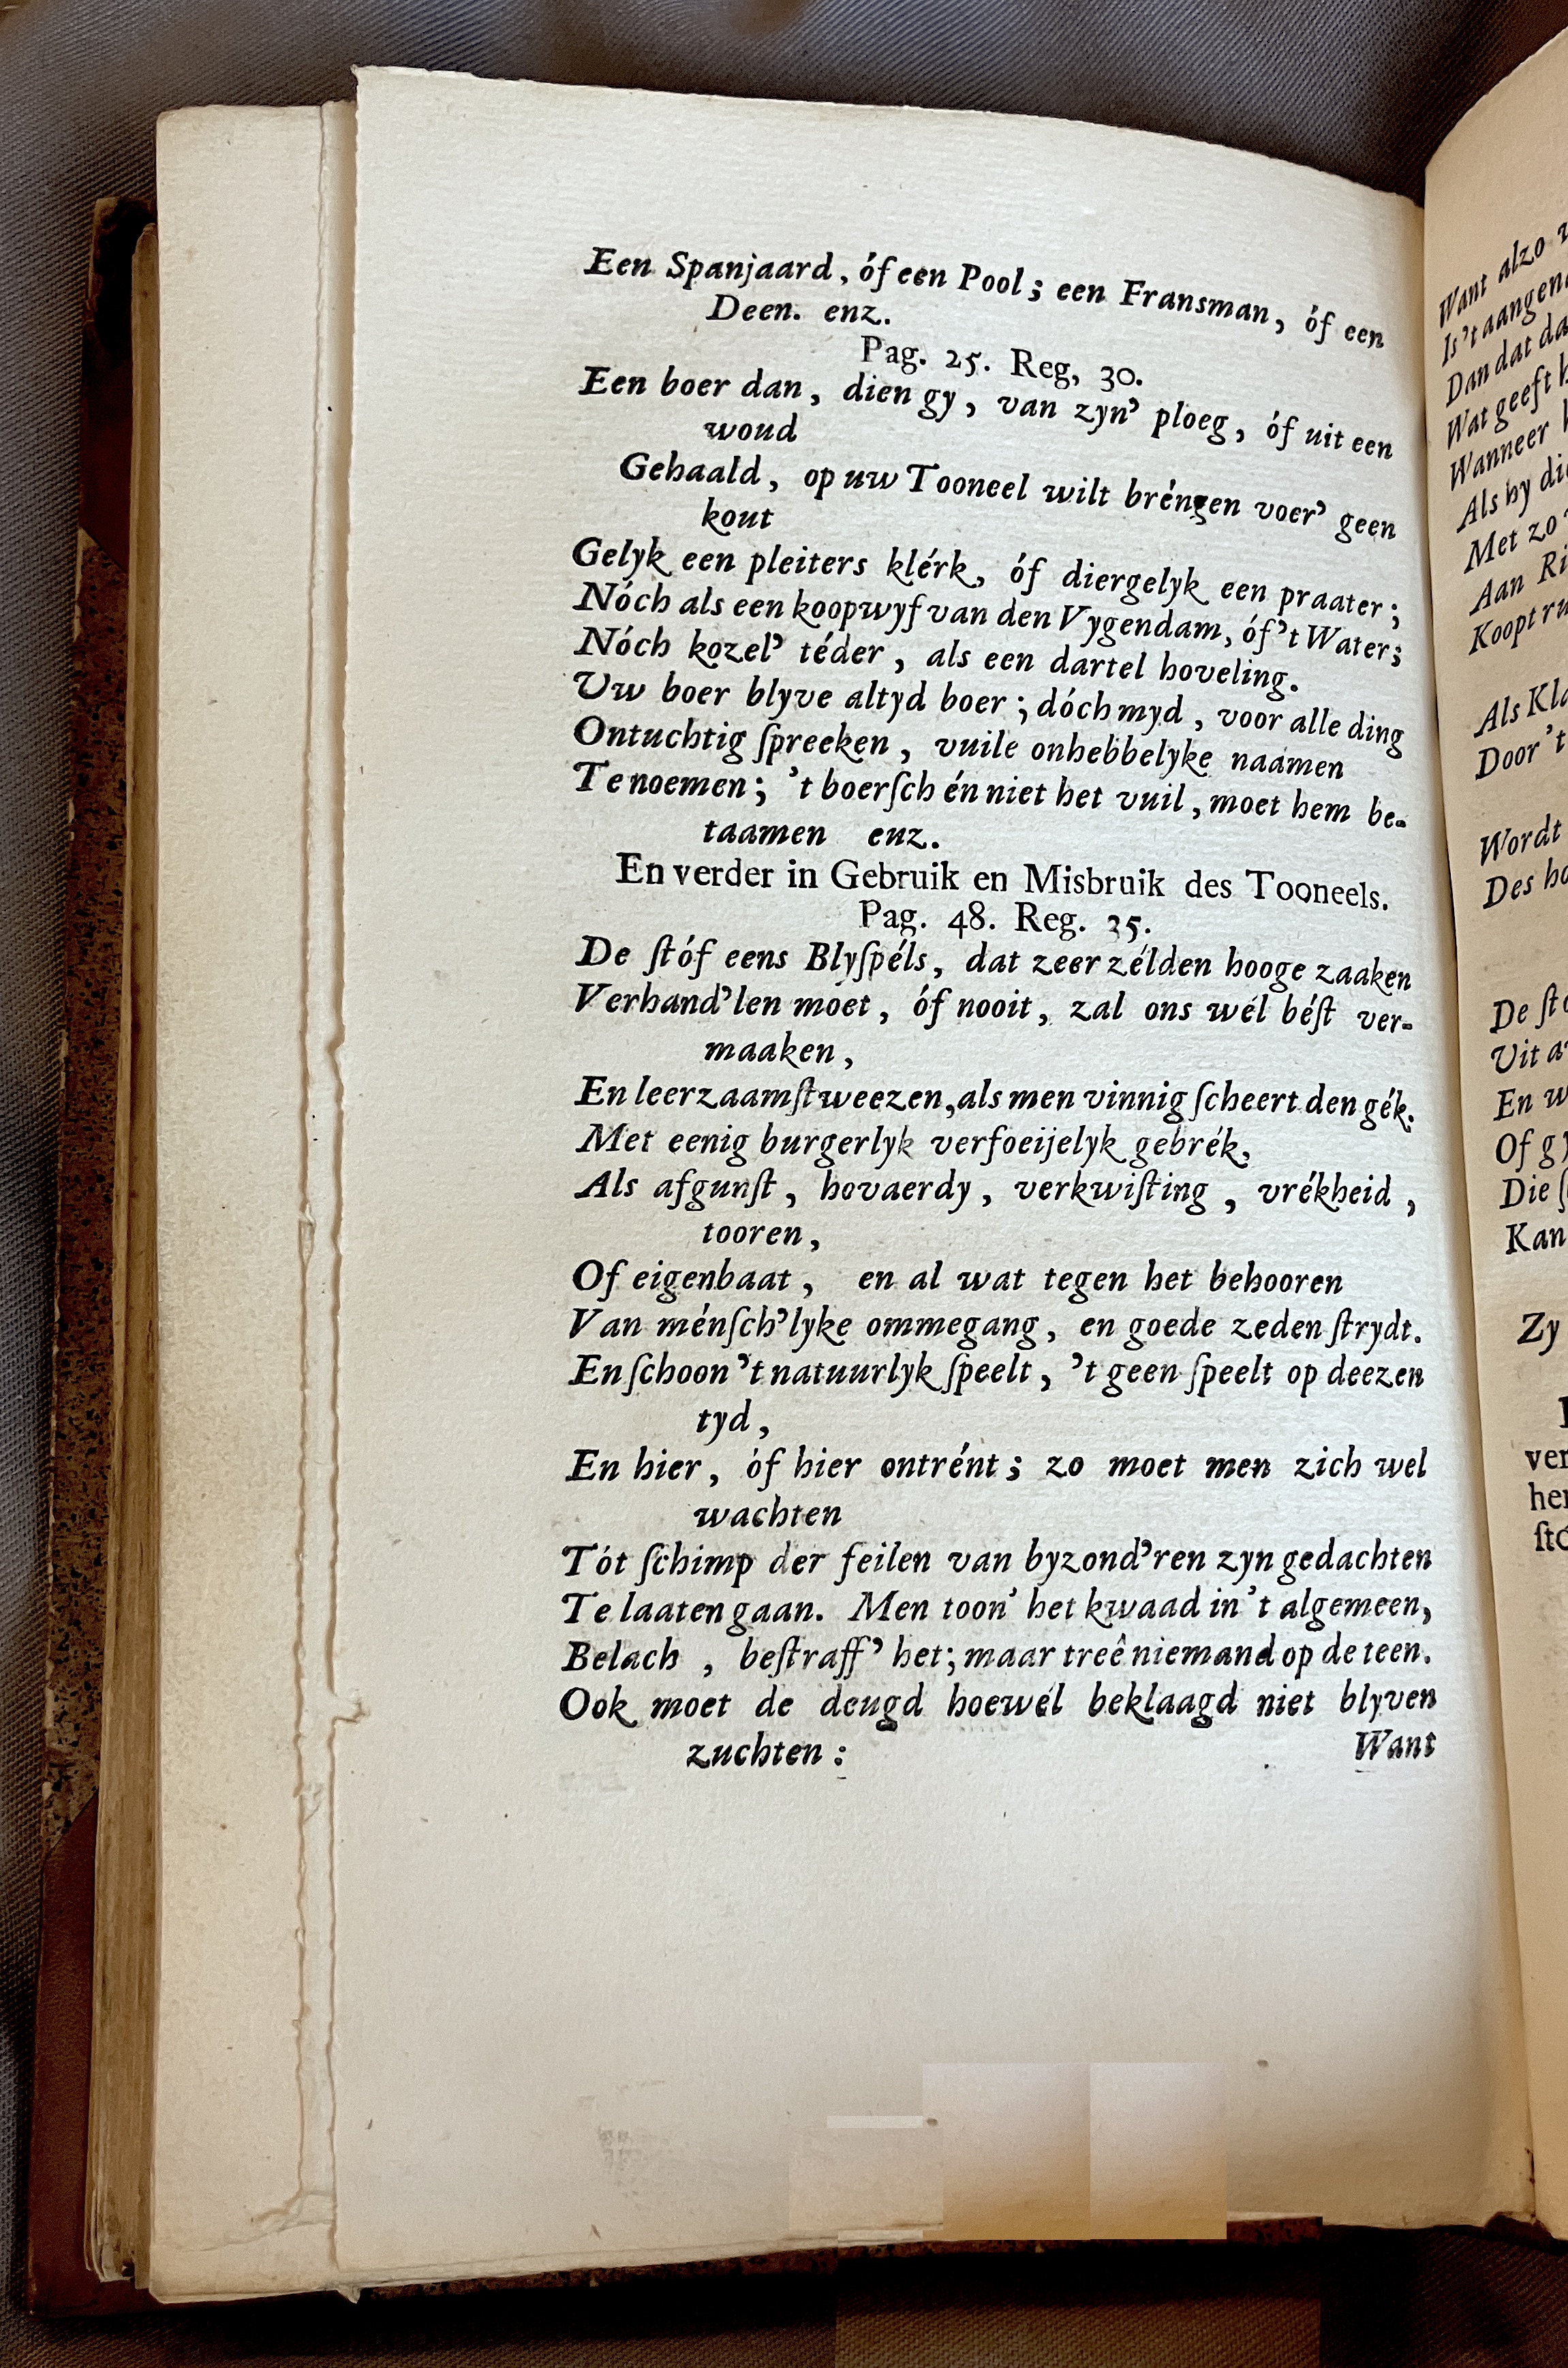 Een Spanjaard, óf een Pool; een Fransman, óf een
Deen. enz.
Pag. 25. Reg, 30.
Een boer dan, dien gy, van zyn’ ploeg, óf uit een
woud
Gehaald, op uw Tooneel wilt bréngen voer’ geen
kout
Gelyk een pleiters klérk, óf diergelyk een praater;
Nóch als een koopwyf van den Vygendam, óf ’t Water;
Nóch kozel’ téder, als een dartel hoveling.
Uw boer blyve altyd boer; dóch myd, voor alle ding
Ontuchtig ſpreeken, vuile onhebbelyke naamen
Te noemen; ’t boerſch én niet het vuil, moet hem be-
taamen enz.
En verder in Gebruik en Misbruik des Tooneels.
Pag. 48. Reg. 35.
De ſtóf eens Blyſpéls, dat zeer zélden hooge zaaken
Verhand’len moet, óf nooit, zal ons wél béſt ver-
maaken,
En leerzaamſt weezen, als men vinnig ſcheert den gék.
Met eenig burgerlyk verfoeijelyk gebrék,
Als afgunſt, hovaerdy, verkwiſting, vrékheid,
tooren,
Of eigenbaat, en al wat tegen het behooren
Van ménſch’lyke ommegang, en goede zeden ſtrydt.
En ſchoon ’t natuurlyk ſpeelt, ’t geen ſpeelt op deezen
tyd,
En hier, óf hier ontrént; zo moet men zich wel
wachten
Tót ſchimp der feilen van byzond’ren zyn gedachten
Te laaten gaan. Men toon’ het kwaad in ’t algemeen,
Belach, beſtraff’ het; maar treê niemand op de teen.
Ook moet de deugd hoewél beklaagd niet blyven
zuchten:
Want
Want alzo
Is ’t
Dan dat
Wat geeft
Wanneer
Als hy
Met zo
Aan
Koopt
Als
Door ’t
Wordt
Des
De
Uit
En
Of
Die
Kan
Zy